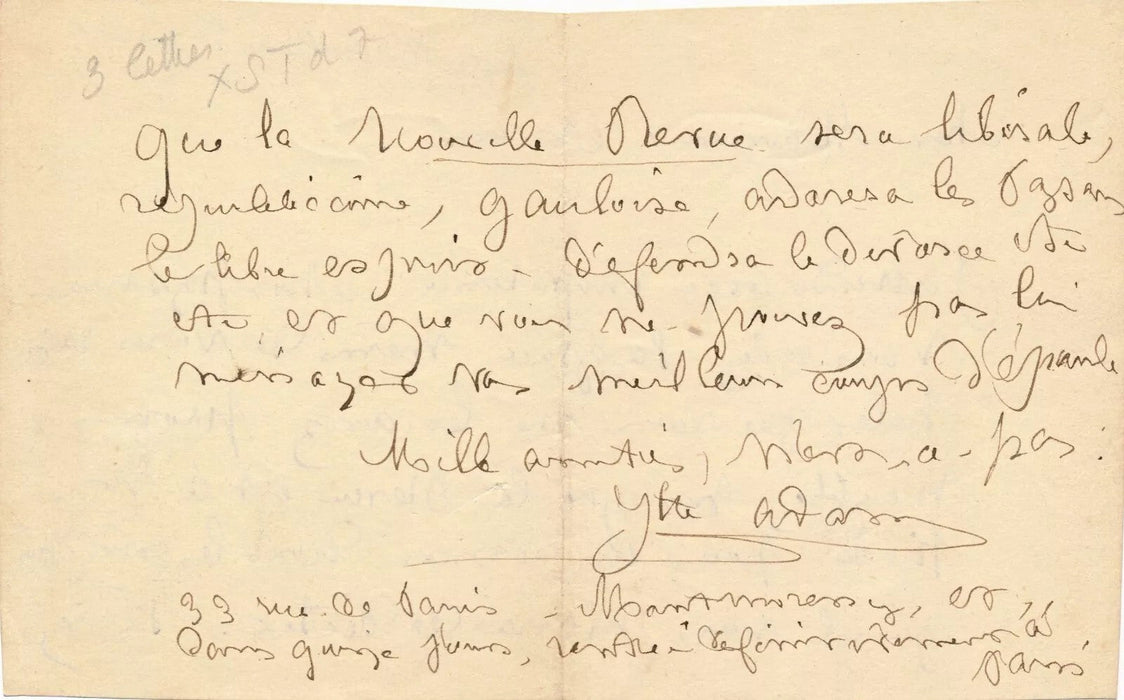 3 lettres
XSTd7
Que la Nouvelle Revue sera libérale,
républicaine, gauloise, adorera les
le libre esprit – défendra le etc
etc et que vous ne pouvez pas lui
ménager vos meilleurs coups d'épaule
Mille amitiés, n'est-ce-pas :
Ytte adam
33 rue de Paris – Montmorency, et
Dans quinze jours, rentrée définitivement à
Paris